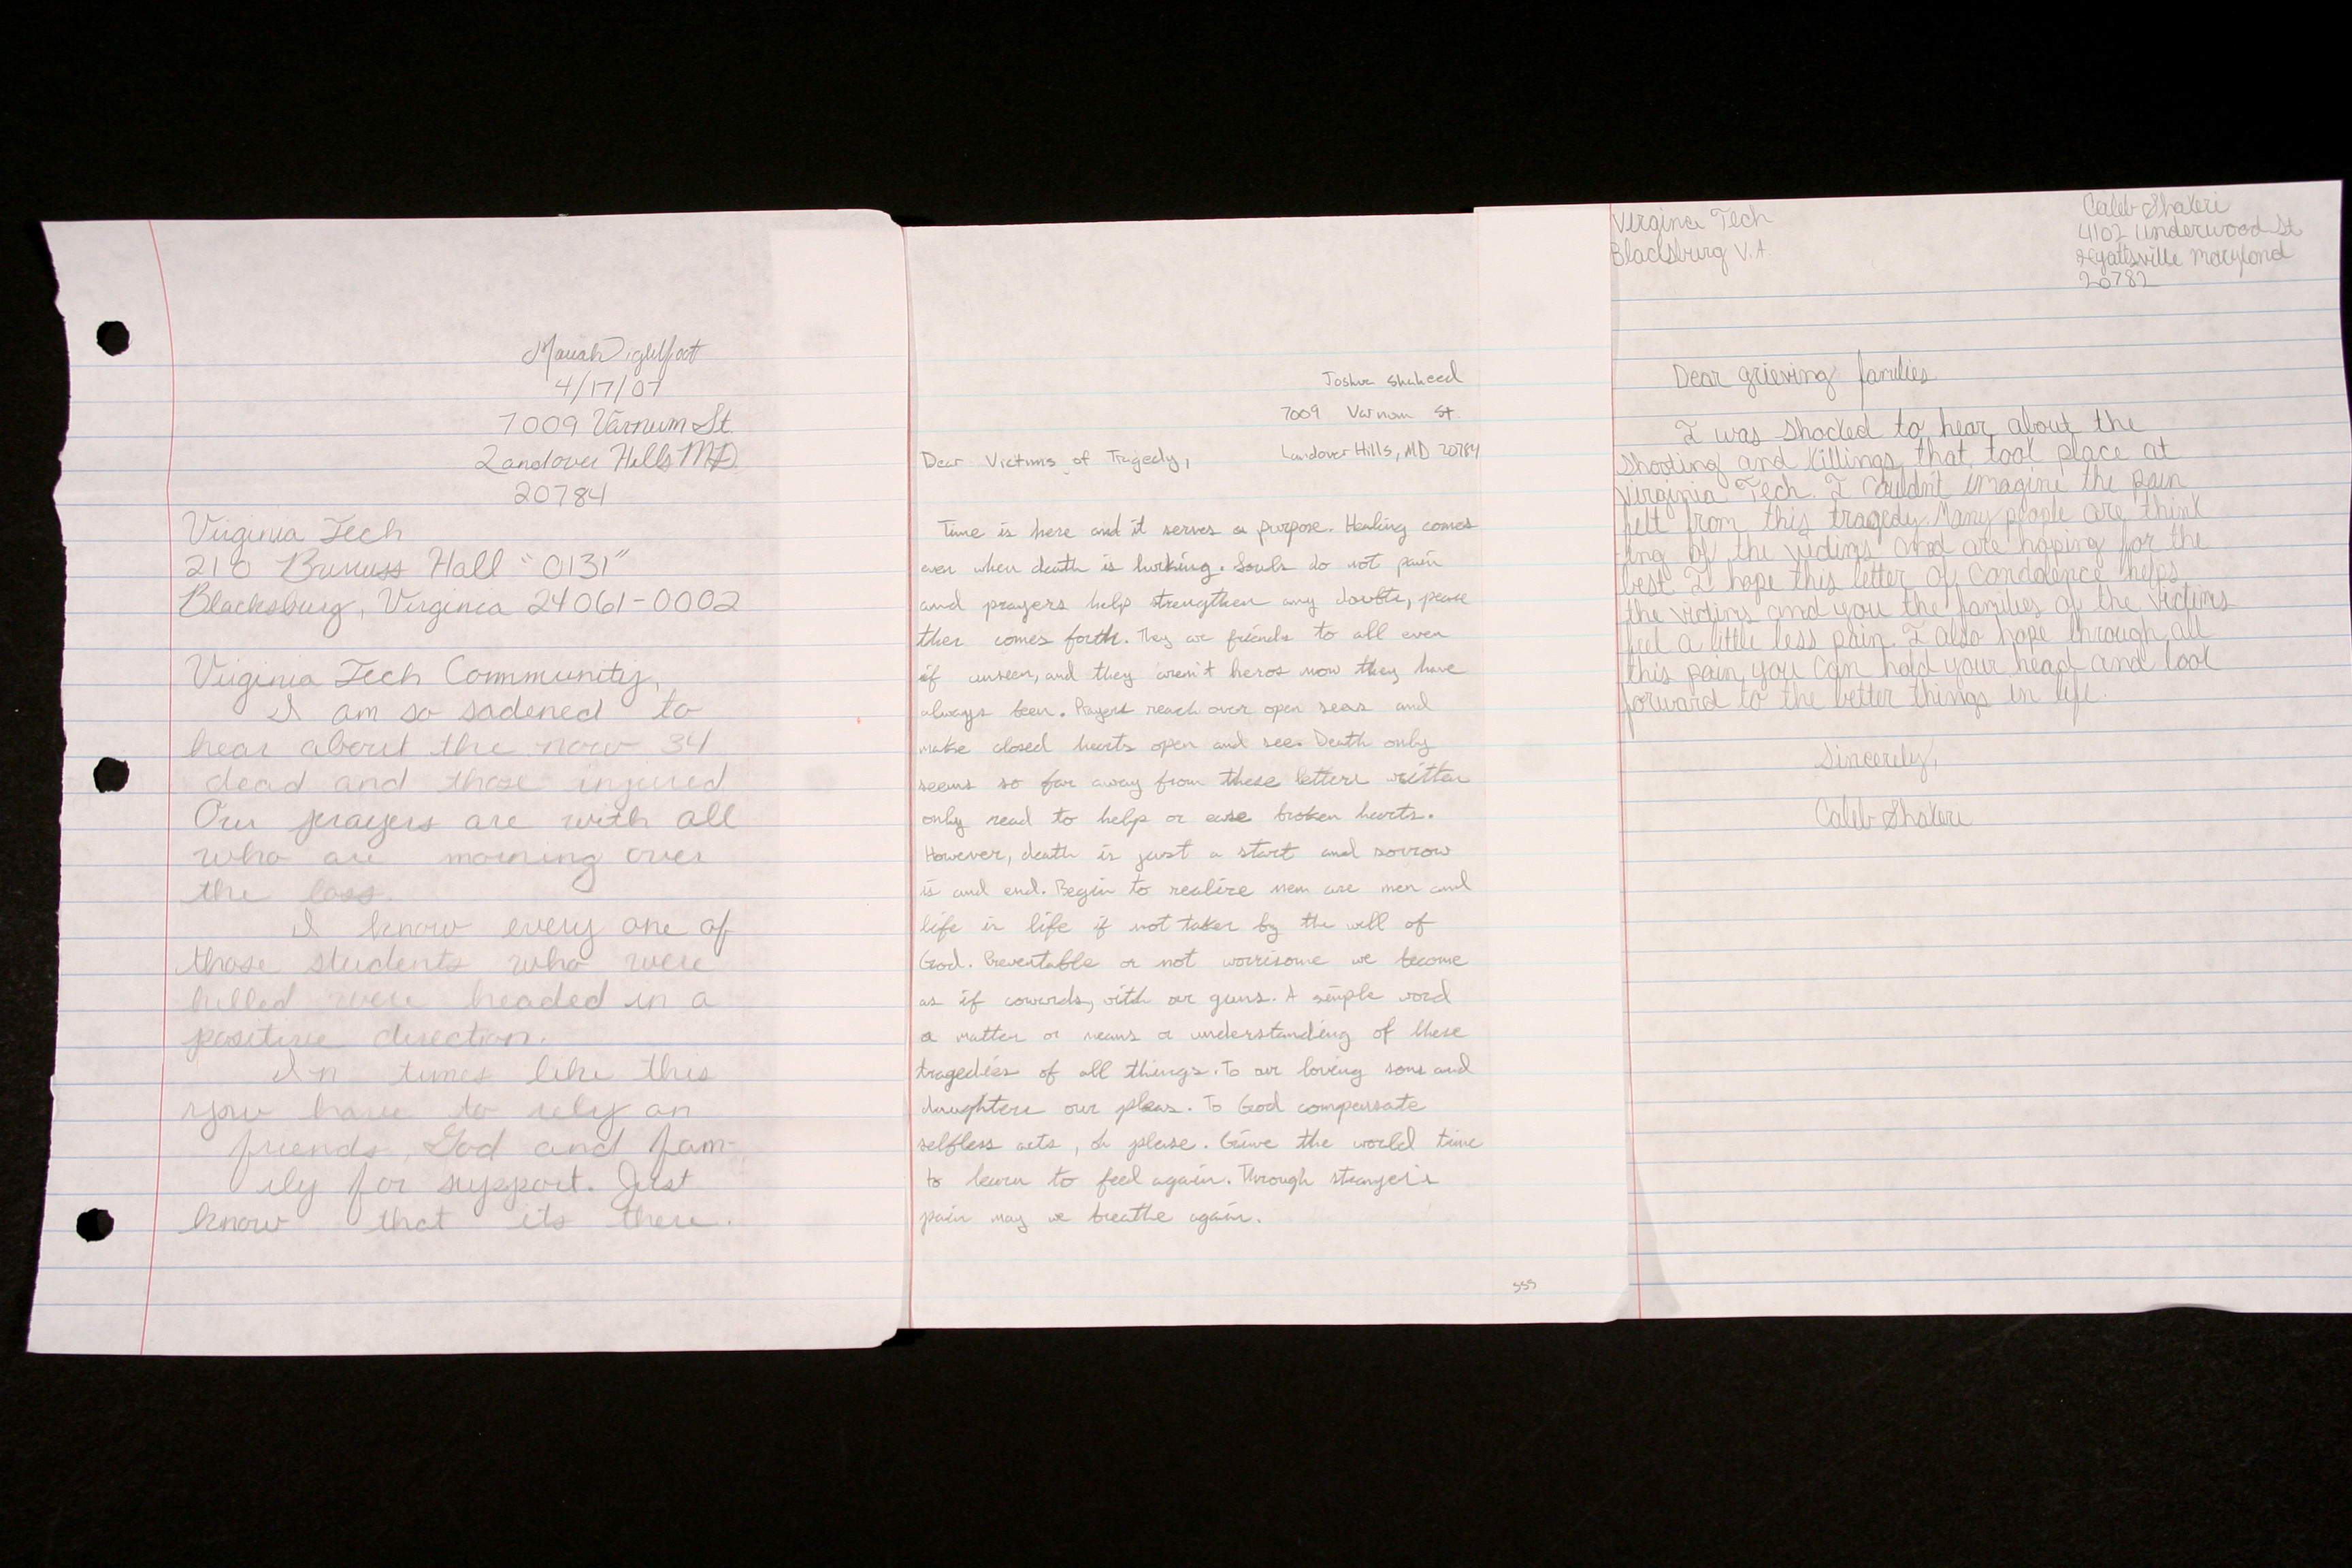 4/17/07
7009 Varnum St.
Landover Hills MD
20784
Virginia Tech
210 Burruss Hall "0131"
Blacksburg, Virginia 24061-0002
Virginia Tech Community,
I am so sadened to
hear about the now 34
dead and those injured
Our prayers are with all
who are morning over
the loss.
I know every one of
those students who were
killed were headed in a
positive direction.
In times like this
you have to rely on
friends, God and fam-
ily for support. Just
know that its there.
Joshua Shaheed
7009 Varnum St.
Landover Hills, MD 20784
Dear Victims of Tragedy,
Time is here and it serves a purpose. Healing comes
even when death is lurking. Souls do not pain
and prayers help strengthen any doubts, peace
then comes forth. They are friends to all even
if unseen, and they aren't heros now they have
always been. Prayers reach over open seas and
make closed hearts open and see. Death only
seems so far away from these letters written
only read to help or ease broken hearts.
However, death is just a start and sorrow
is and end. Begin to realize men are men and
life is life if not taken by the will of
God. Preventable or not worrisome we become
as if cowards, with our guns. A simple word
a matter or means a understanding of these
tragedies of all things. To our loving sons and
daughters our pleas. To God compensate
selfless acts, oh please. Give the world time
to learn to feel again. Through stranger's
pain may we breathe again.
555
Virgina Tech
Blacksburg V.A.
Caleb Shakeri
4102 Underwood St
Hyattsville Maryland
20782
Dear grieving families
I was shocked to hear about the
shooting and killings that took place at
Virginia Tech. I couldn't imagine the pain
felt from this tragedy. Many people are think
ing of the victims and are hoping for the
best. I hope this letter of condolence helps
the victims and you the families of the victims
feel a little less pain. I also hope through all
this pain you can hold your head and look
forward to the better things in life.
Sincerely,
Caleb Shakeri